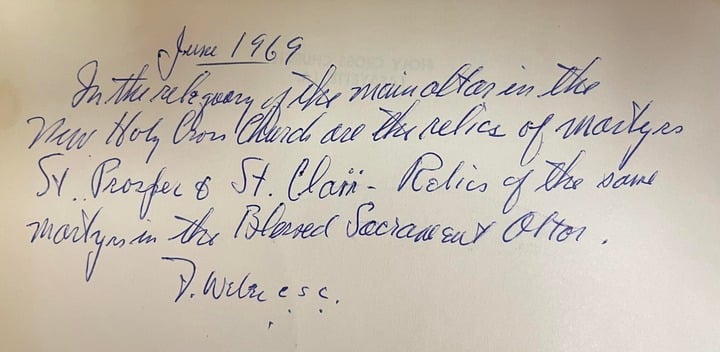 June 1969
In the reliquary of the main altar in the
New Holy Cross Church are the relics of martyrs
St. Prosper & St. Clair - Relics of the same
martyrs in the Blessed Sacrament Altar.
csc.